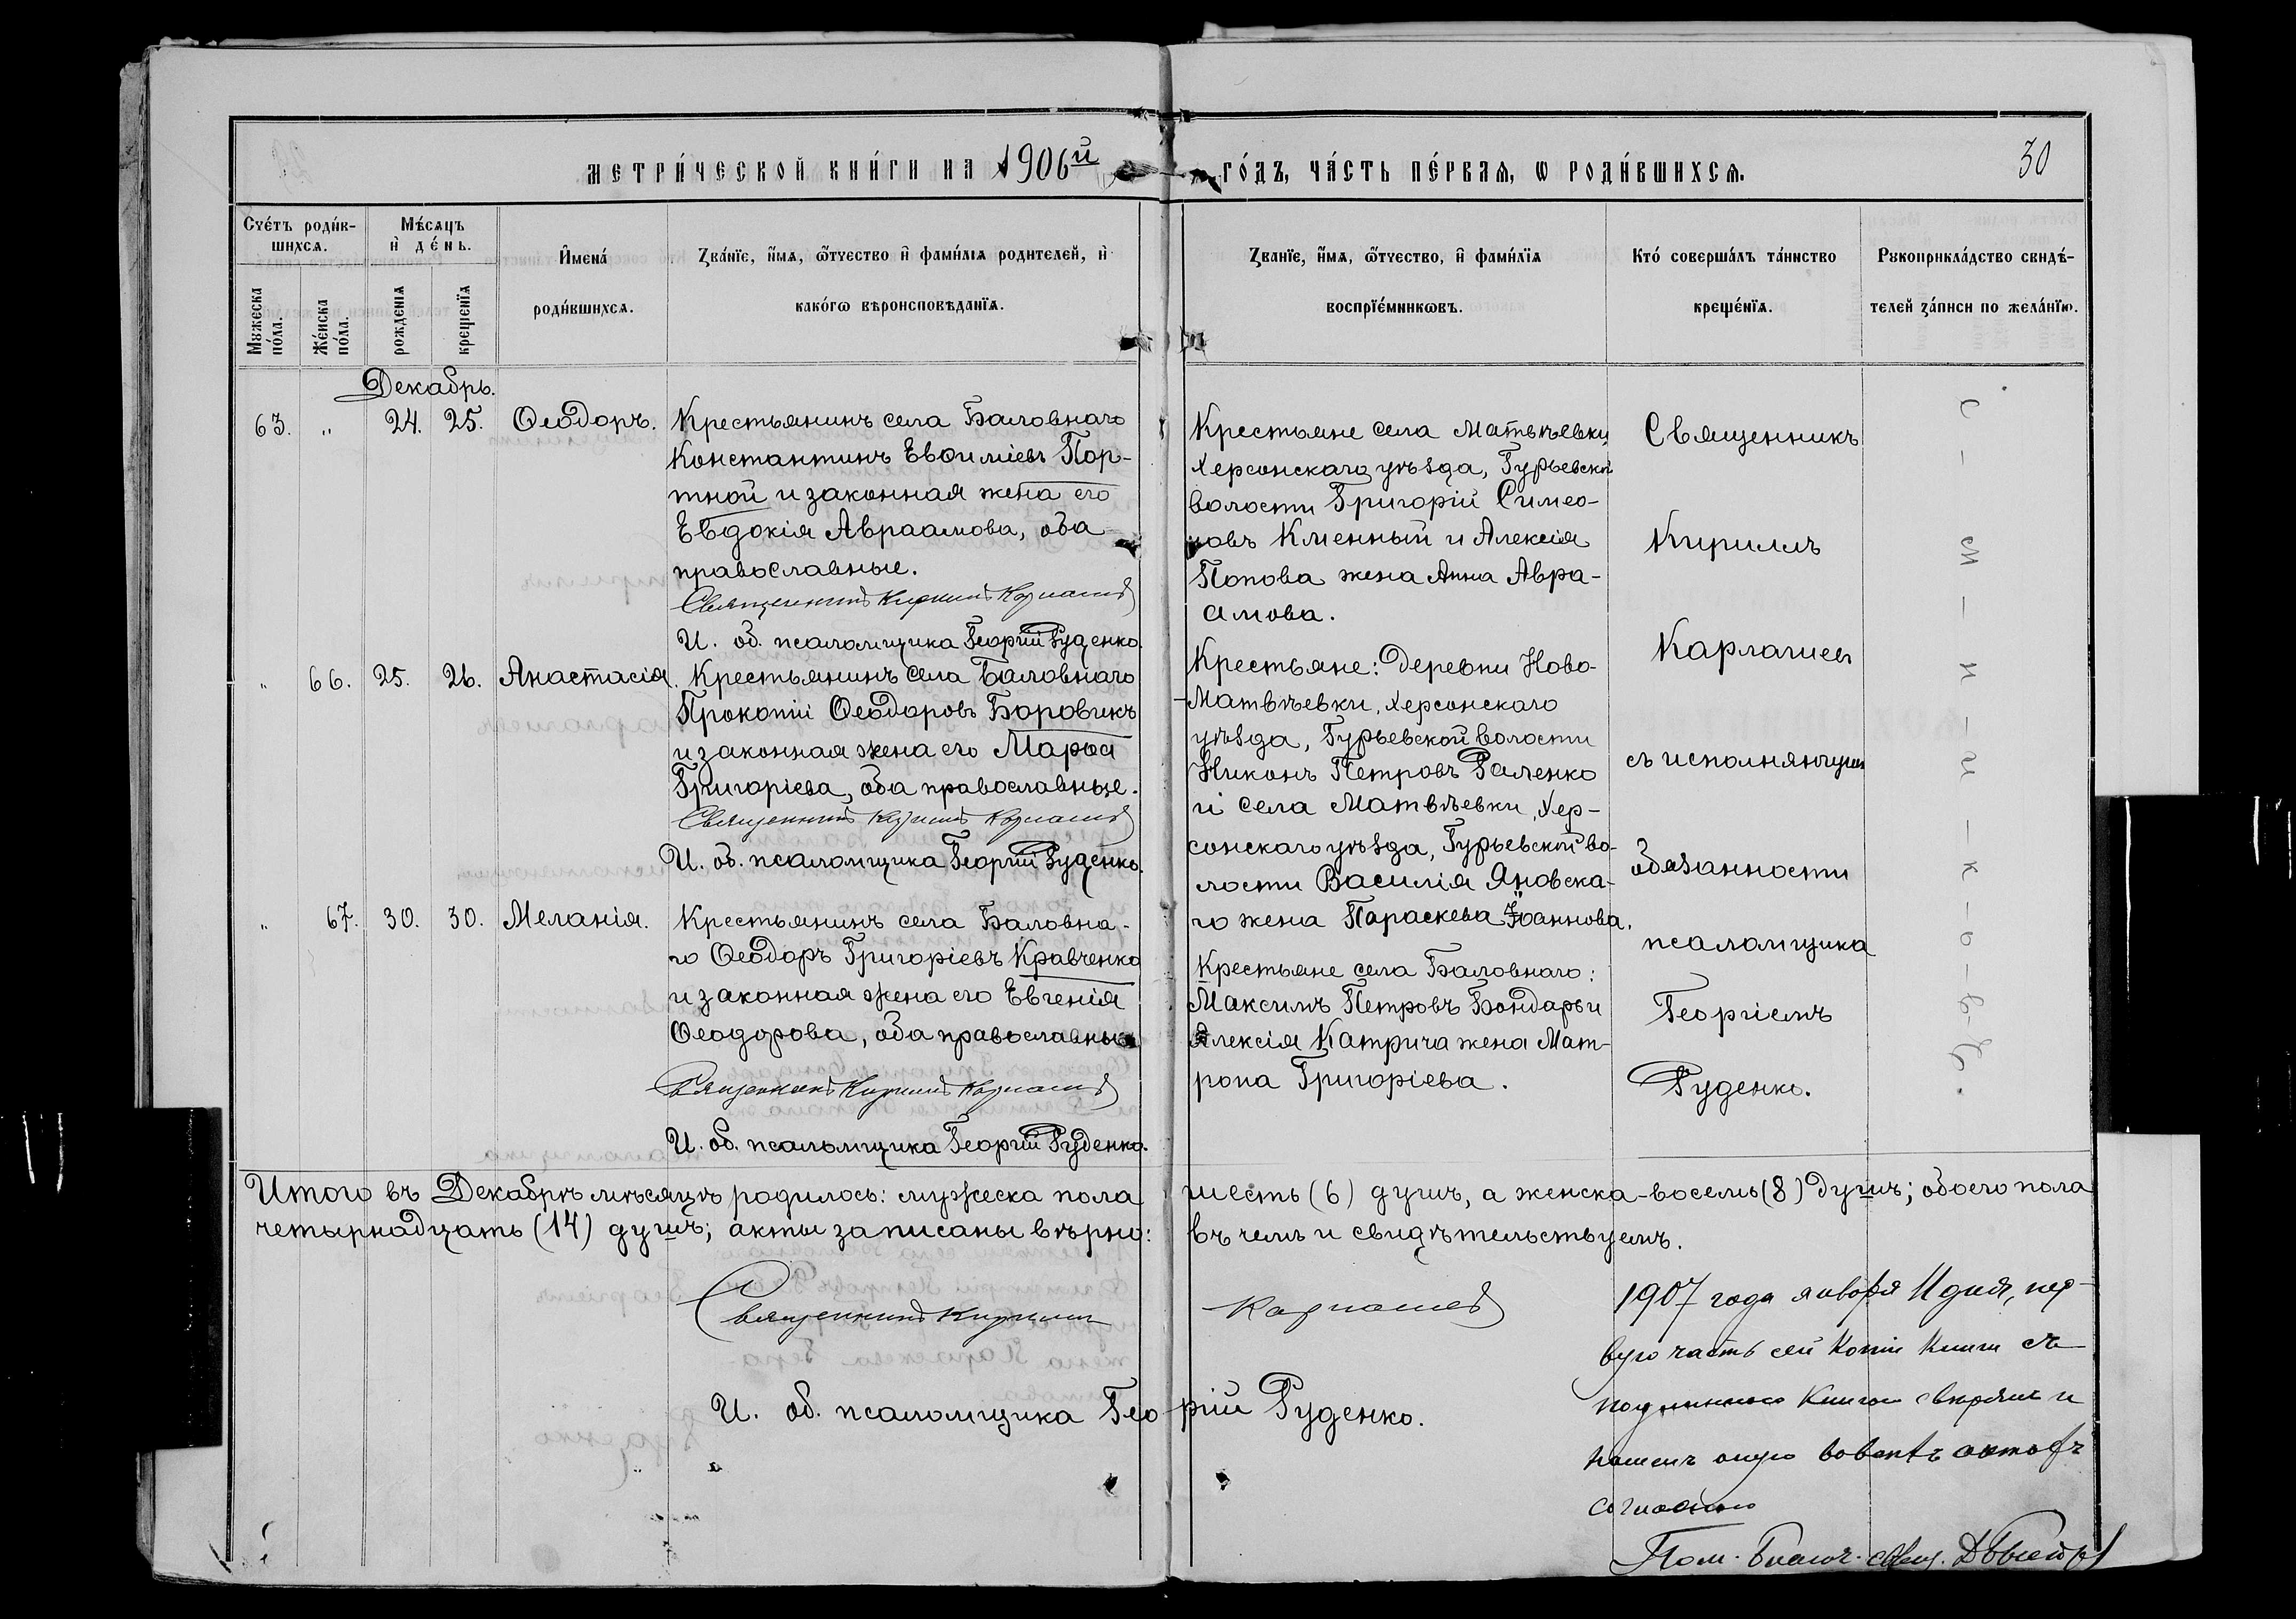 МЕТРИ́ЧЕСКОЙ КНИ́ГИ НА 1906й ГО́ДЪ, ЧА́СТЬ ПЕ́РВАЯ, Ѡ РОДИ́ВШИХСЯ.
30
Сче́тъ роди́в-
шихся.
Мѣ́сяцъ
и҆ де́нь.
Мужеска по́ла.
Же́нска по́ла.
рожденія
крещенїя
И҆мена́
роди́вшихся.
Зва́нїе, и҆́мя, ѻ҆́тчество и҆ фами́лія родителей, и҆
како́гѡ вѣроисповѣ́данїя.
Зва́нїе, и҆́мя, ѻ҆́тчество, и҆ фами́лїя
воспрїе́мникѡвъ.
Кто́ соверша́лъ та́инство
креще́нїя.
Рукоприкла́дство свидѣ́-
телей за́писи по жела́нїю.
Декабрь.
63. " 24. 25. Ѳеодоръ.
Крестьянинъ села Баловнаго
Константинъ Евѳиміевъ Пор-
тной и законная жена его
Евдокія Авраамова, оба
православные.
Священникъ Кириллъ Карлашев
И. об. псаломщика Георгій Руденко.
Крестьяне села Матвѣевки
Херсонскаго уѣзда, Гурьевской
волости Григорій Симео-
новъ Кменный и Алексія
Попова жена Анна Авра-
амова.
" 66. 25. 26. Анастасія.
Крестьянинъ села Баловнаго
Прокопій Ѳеодоровъ Боровикъ
и законная жена его Марѳа
Григоріева, оба православные.
Священникъ Кириллъ Карлашев
И. об. псаломщика Георгій Руденко.
Крестьяне: деревни Ново-
-Матвѣевки, Херсонскаго
уѣзда, Гурьевской волости
Никонъ Петровъ Раленко
и села Матвѣевки, Хер-
сонскаго уѣзда, Гурьевской во-
лости Василія Яновска-
го жена Параскева Іоаннова.
" 67. 30. 30. Меланія.
Крестьянинъ села Баловна-
го Ѳеодоръ Григоріевъ Кравченко
и законная жена его Евгенія
Ѳеодорова, оба православные
Священникъ Кириллъ Карлашев
И. об. псаломщика Георгій Руденко.
Крестьяне села Баловнаго:
Максимъ Петровъ Бондарь и
Алексія Катрича жена Мат-
рона Григоріева.
Священникъ
Кириллъ
Карлашев
съ исполняющимъ
обязанности
псаломщика
Георгіемъ
Руденко.
Итого въ Декабрѣ мѣсяцѣ родилось: мужеска пола шесть (6) душъ, а женска - восемь (8) душъ; обоего пола
четырнадцать (14) душъ; акты записаны вѣрно: въ чемъ и свидѣтельствуемъ.
Священникъ Кириллъ Карлашев
И. об. псаломщика Георгій Руденко.
1907 года января 11 дня, пер-
вую часть сей копіи книги съ
подлинною книгою свѣрялъ и
нашелъ оную во всехъ актахъ
согласною
Пом. Благоч. свящ.